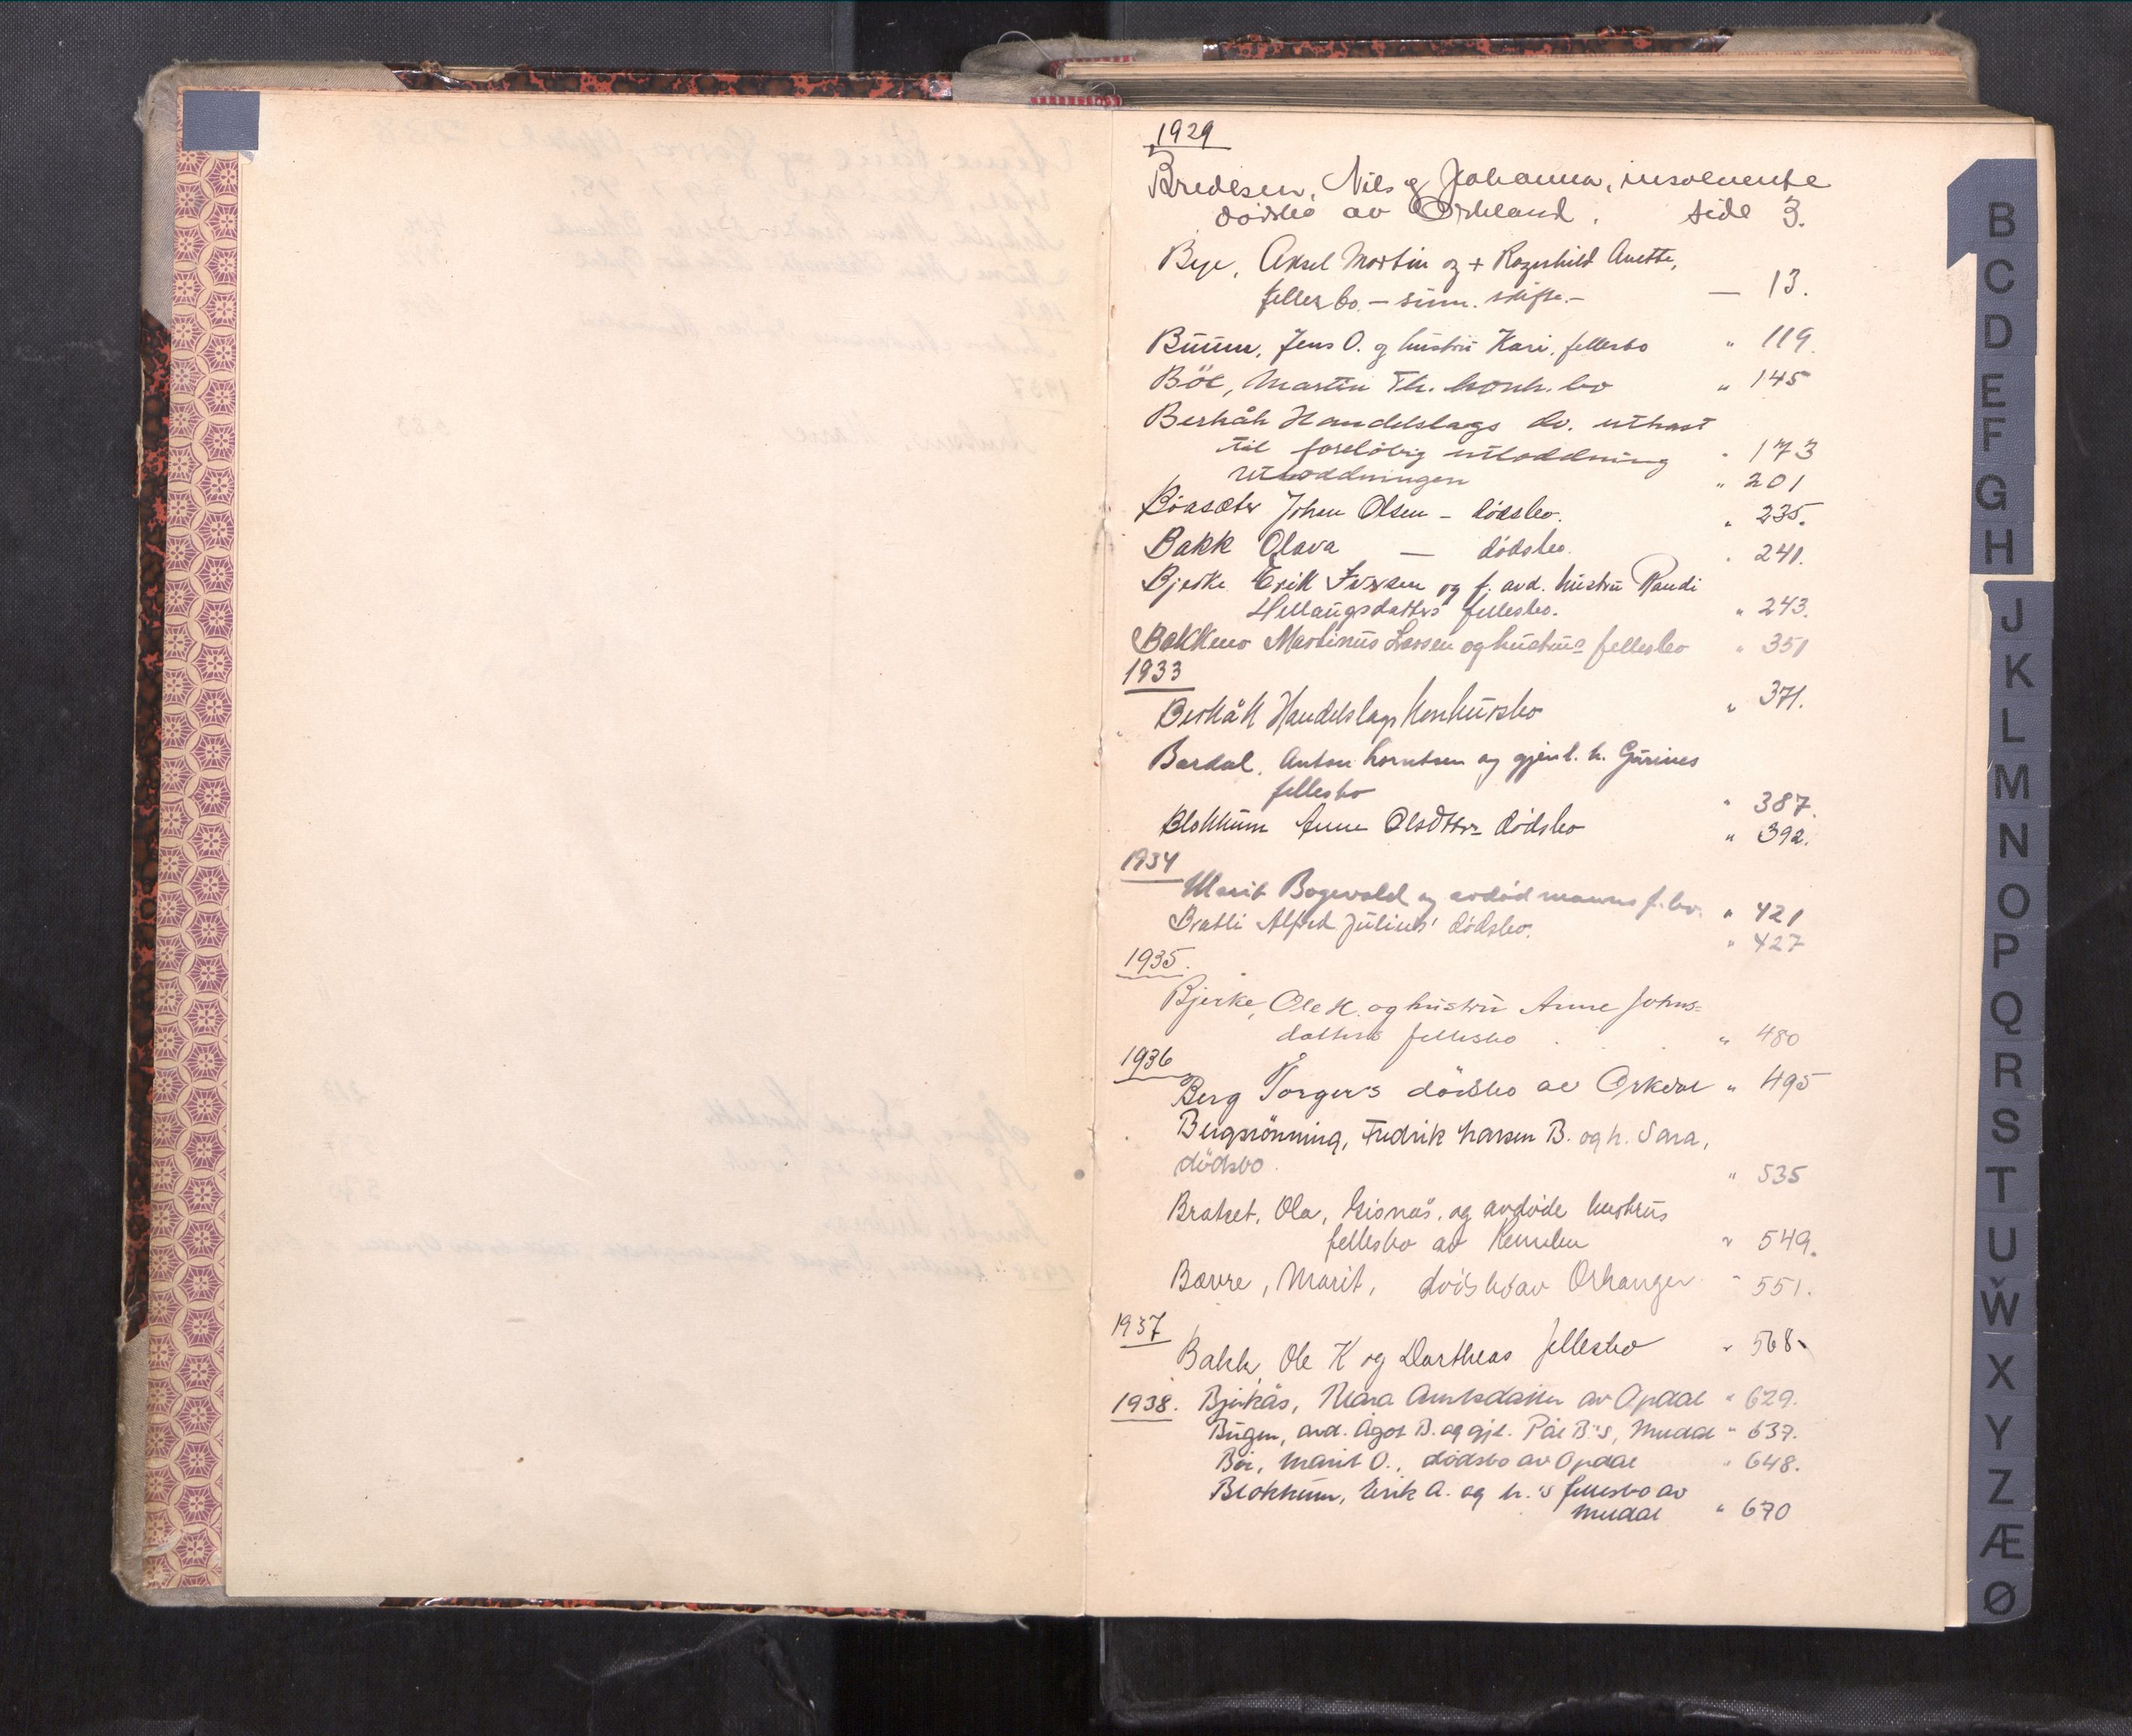 1929
Bredesen, Nils og Johanna, insolvente
dødsbo av Orkland. side 3.
Bye, Aksel Martin og + Ragnhild Anette,
fellesbo. – summ. skifte. – — 13.
Buum, Jens O. og hustru Kari, fellesbo " 119.
Böe, Martin Th. konk. bo " 145
Berkåk Handelslags bo. utkast
til foreløbig utloddning " 173
utloddningen " 201
Johan Olsen – dødsbo. " 235.
Bakk Olava — dødsbo. " 241.
Bjerke Erik Iversen og f. avd. hustru Randi
Hellaugsdatters fellesbo. " 243.
Bakkemo Martinus Larsen og hustrus fellesbo " 351
1933
Berkåk Handelslags konkursbo " 371.
Bardal, Anton Lorntsen og gjenl. h. Gurines
fellesbo " 387.
Blokkum Anne Olsdttr– dødsbo " 392.
1934
Marit Bogevold og avdød manns f.bo. " 421
Bratli Alfred Julius' dødsbo. " 427
1935.
Bjerke, Ole H. og hustru Anne Johns-
datters fellesbo " 480
1936
Berg Torger's dødsbo av Orkdal " 495
Bergsrönning, Fredrik Larsen B. og h. Sara,
dödsbo. " 535
Brattset, Ola, og avdøde hustrus
fellesbo av Rennebu " 549.
Bævre, Marit, dødsbo av Orkanger " 551.
1937
Bakk, Ole K og Dortheas fellesbo " 568.
1938. Bjerkås, Mara Arntsdatter av Opdal " 629.
Bugen, avd. Ågot B. og gjl. Pål B.'s, Meldal " 637.
Böe, Marit O., dødsbo av Opdal " 648.
Blokkum, Erik A. og h.'s fellesbo av
Meldal " 670
B
C
D
E
F
G
H
J
K
L
M
N
O
P
Q
R
S
T
U
V
W
X
Y
Z
Æ
Ø